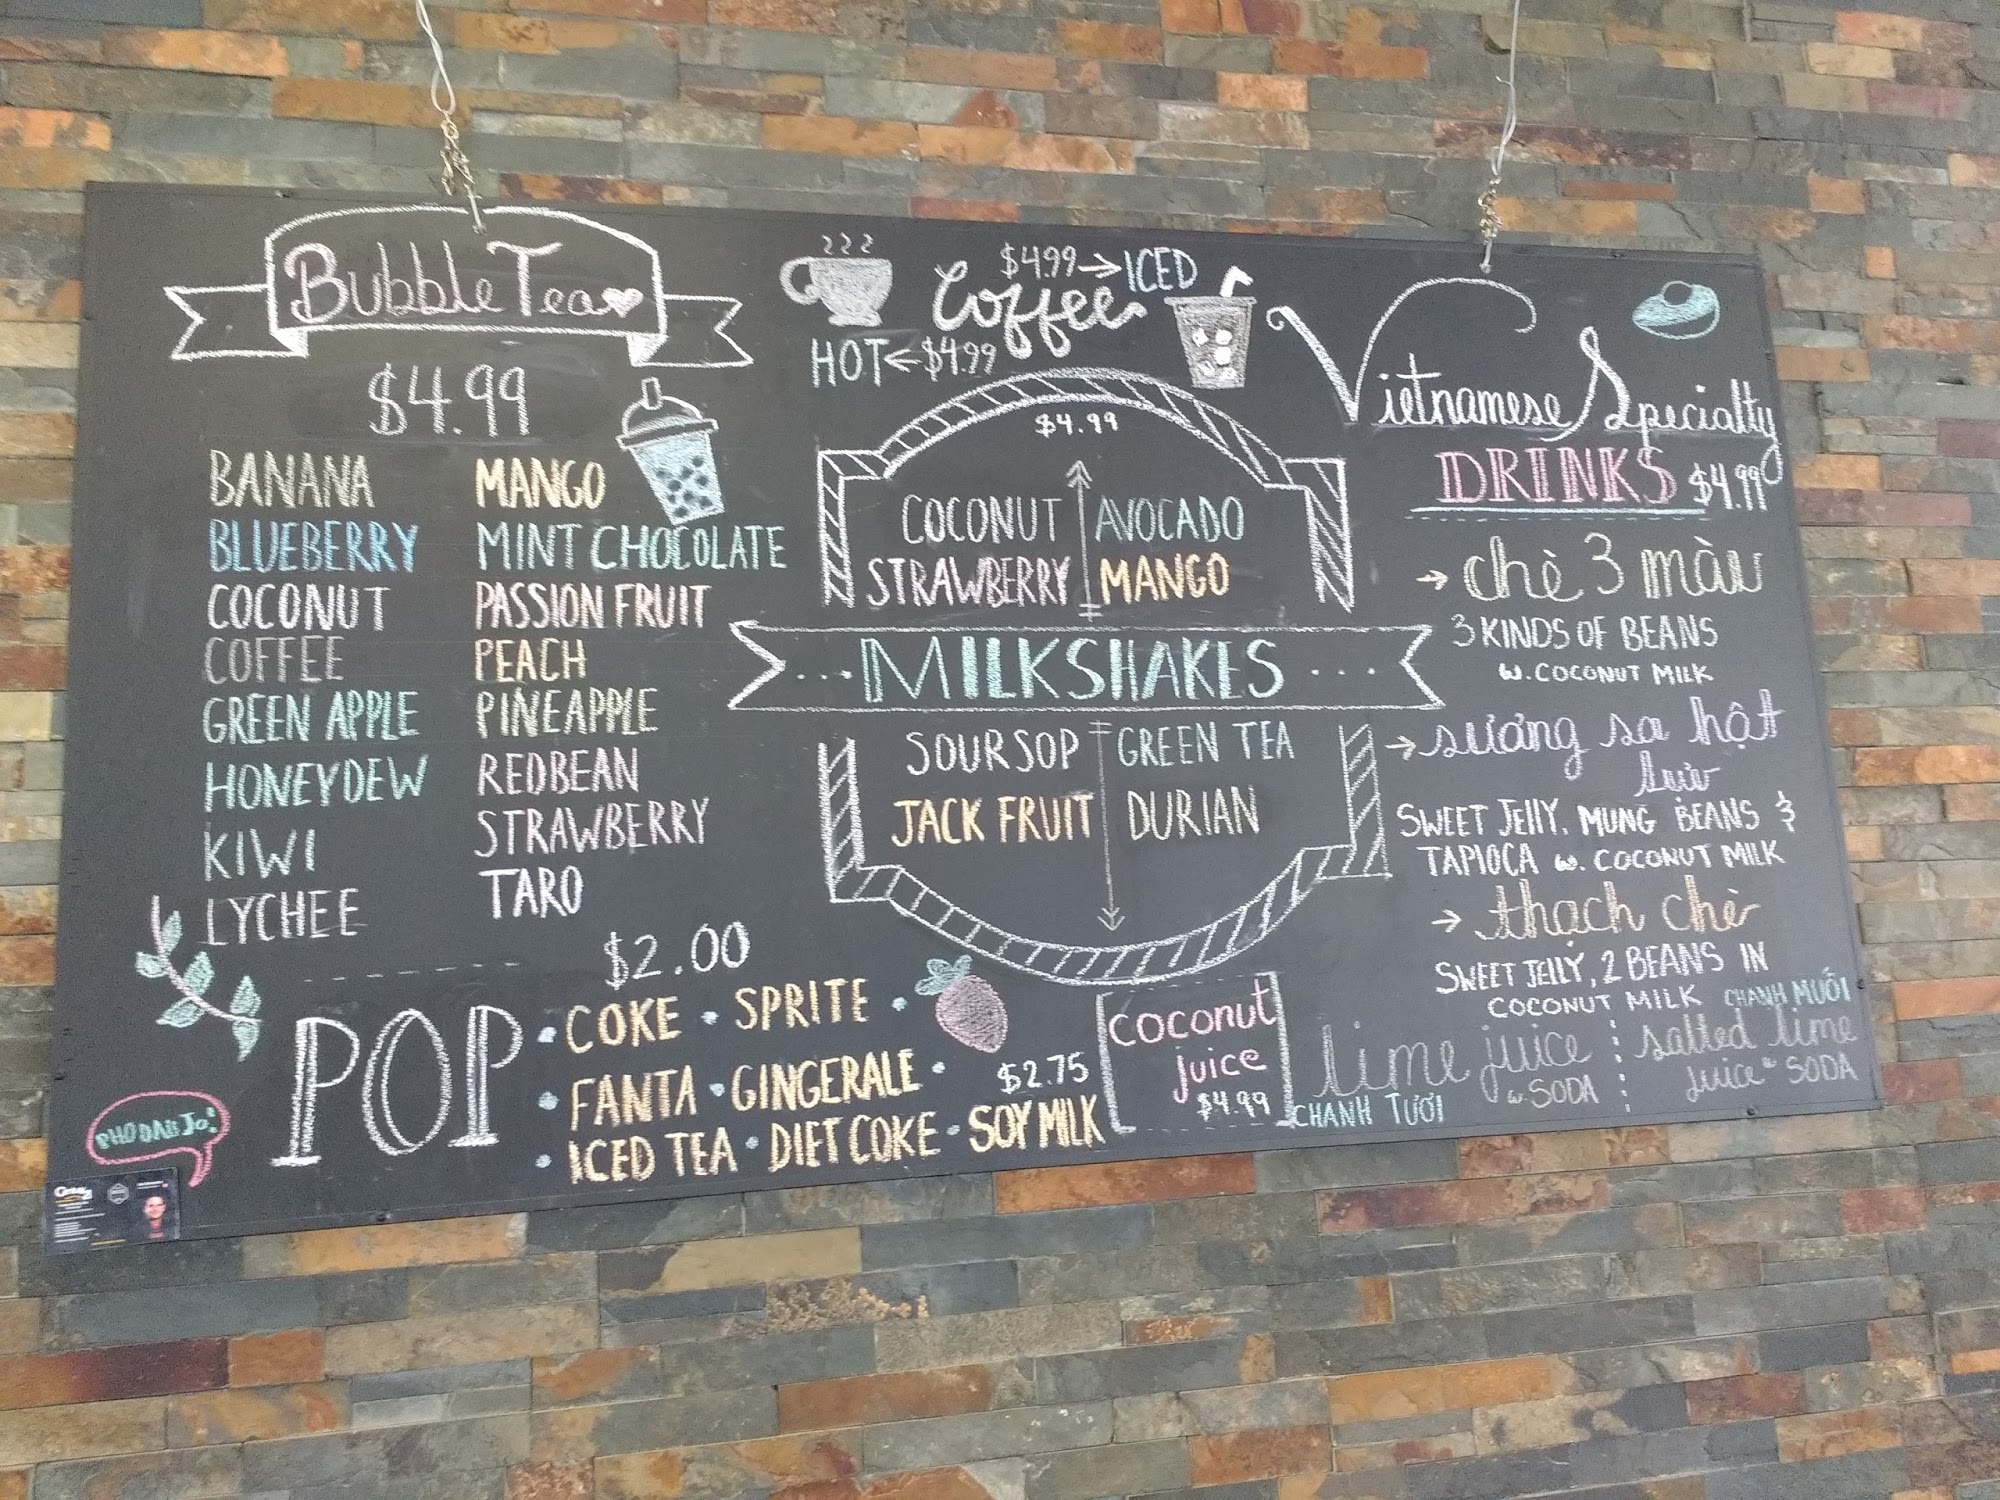 Bubble Tea
$4.99
BANANA
BLUEBERRY
COCONUT
COFFEE
GREEN APPLE
HONEYDEW
KIWI
LYCHEE
MANGO
MINT CHOCOLATE
PASSION FRUIT
PEACH
PINEAPPLE
REDBEAN
STRAWBERRY
TARO
$4.99→ICED
Coffee
HOT←$4.99
$4.99
COCONUT AVOCADO
STRAWBERRY MANGO
...MILKSHAKES...
SOURSOP GREEN TEA
JACK FRUIT DURIAN
Vietnamese Specialty
DRINKS $4.99
→ chè 3 màu
3 KINDS OF BEANS
w. COCONUT MILK
→ sương sa hột
lựu
SWEET JELLY, MUNG BEANS &
TAPIOCA w. COCONUT MILK
→ thạch chè
SWEET JELLY, 2 BEANS IN
COCONUT MILK
$2.00
POP
• COKE • SPRITE •
• FANTA • GINGERALE •
• ICED TEA • DIET COKE • SOY MILK
$2.75
coconut
juice
$4.99
lime juice
w. SODA
CHANH TƯƠI
CHANH MUỐI
salted lime
juice w SODA
PHO DAU JO!